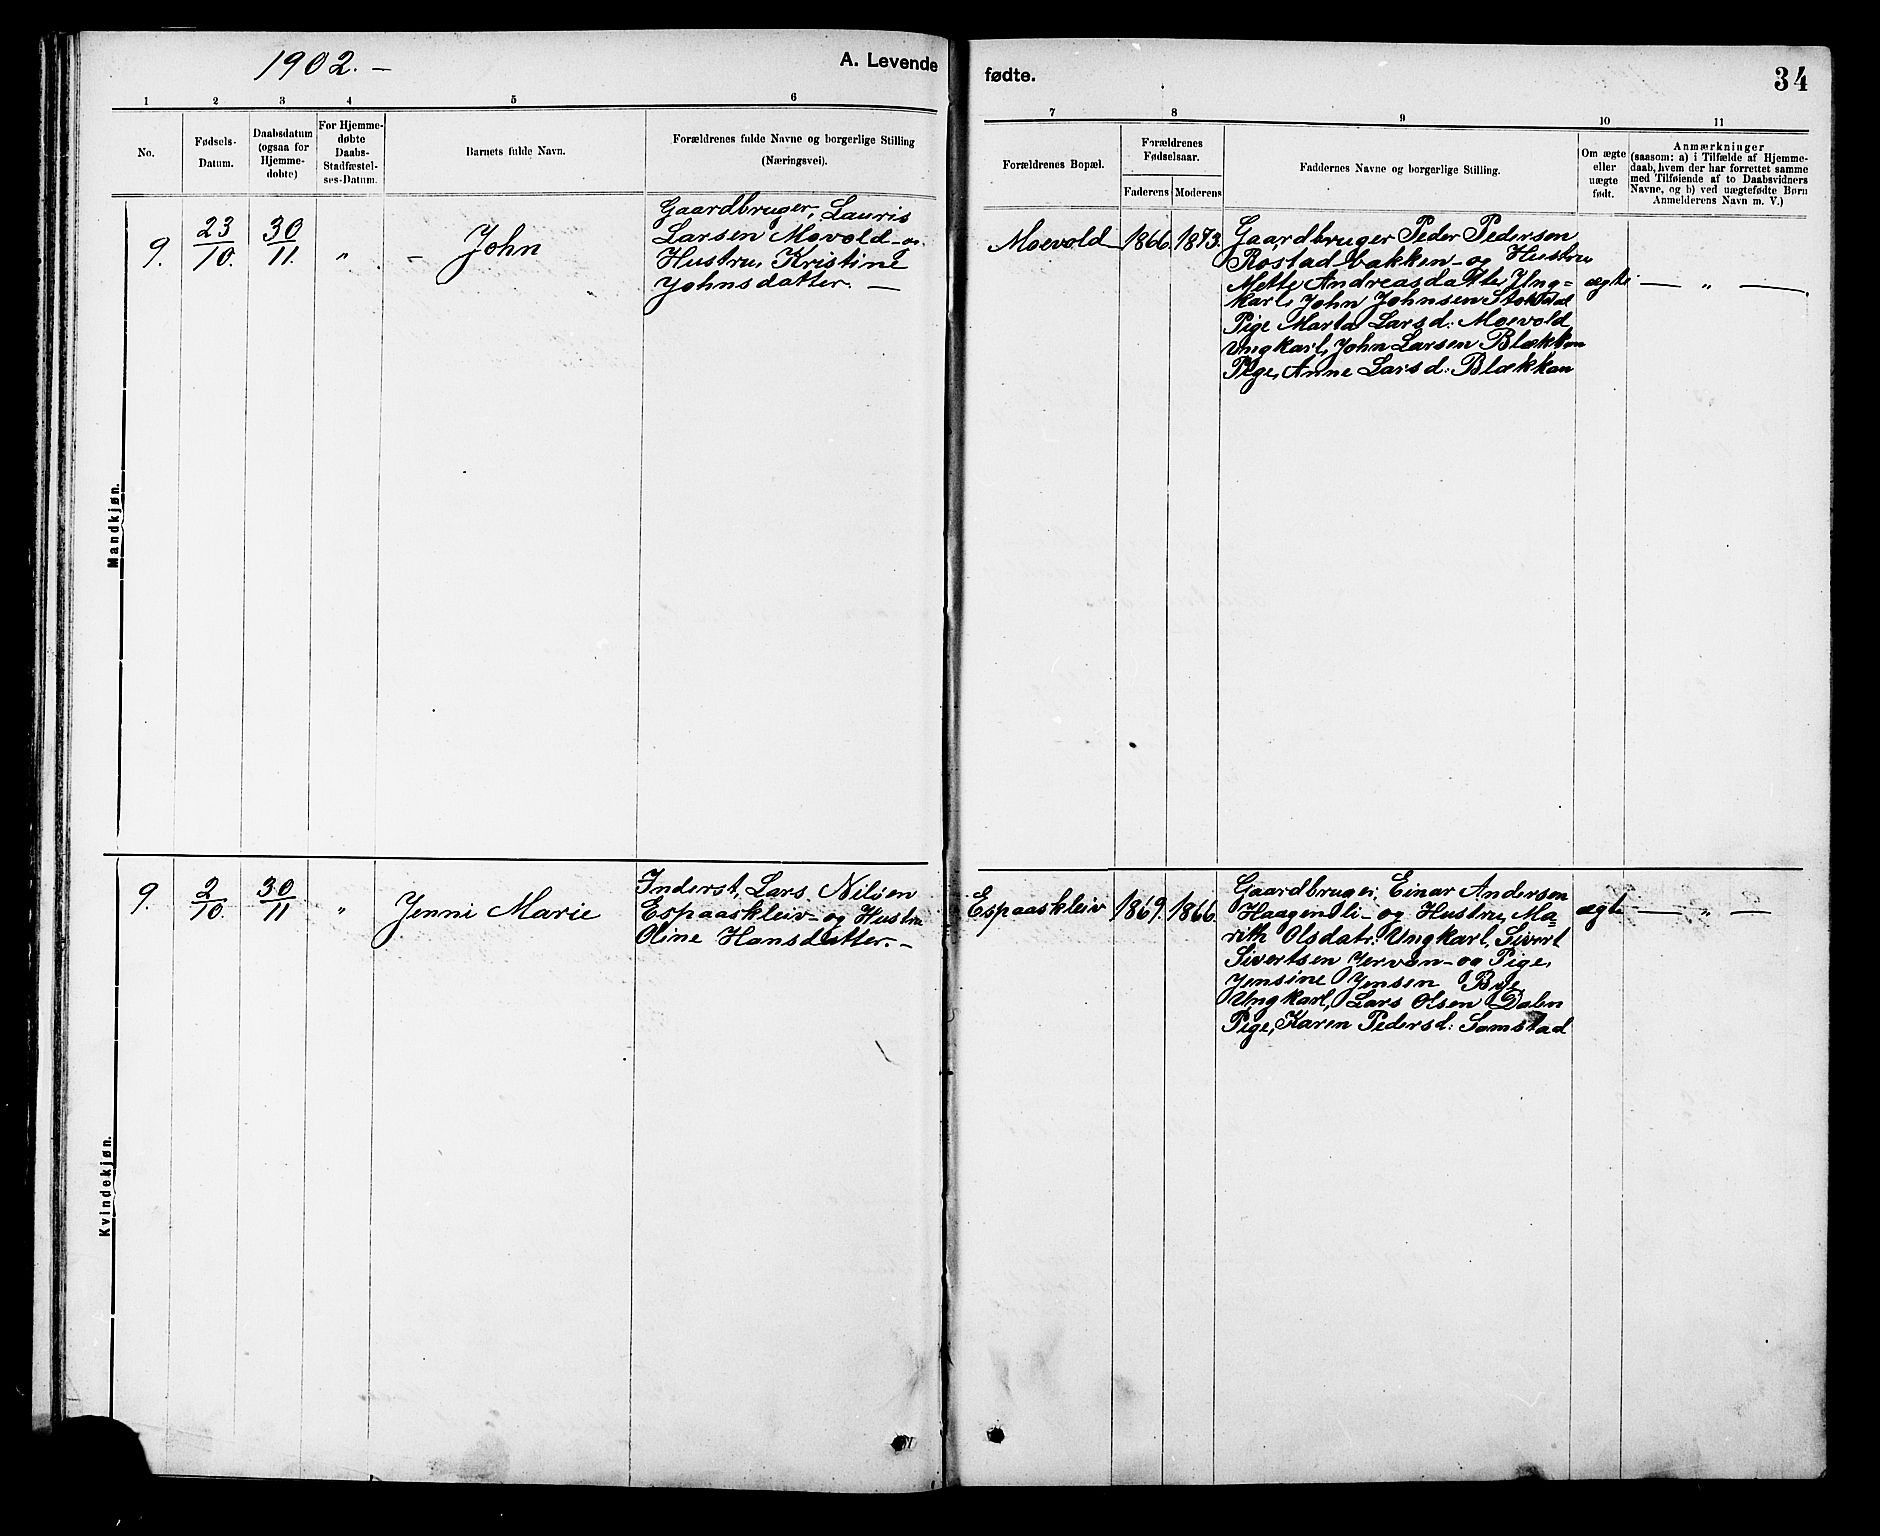 1902.–
A. Levende
fødte.
34
1 2 3 4 5 6
7 8 9 10 11
No.
Fødsels-
Datum.
Daabsdatum
(ogsaa for
Hjemme-
døbte)
For Hjemme-
døbte
Daabs-
Stadfæstel-
ses-Datum.
Barnets fulde Navn.
Forældrenes fulde Navne og borgerlige Stilling
(Næringsvei).
Forældrenes Bopæl.
Forældrenes
Fødselsaar.
Faderens Moderens
Faddernes Navne og borgerlige Stilling.
Om ægte
eller
uægte
født.
Anmærkninger
(saasom: a) i Tilfælde af Hjemme-
daab, hvem der har forrettet samme
med Tilføiende af to Daabsvidners
Navne, og b) ved uægtefødte Børn
Anmelderens Navn m. V.)
Mandkjøn.
9.
23/10.
30/11.
"
– John
Gaardbruger, Lauris
Larsen Movold – og
Hustru, Kristine
Johnsdatter. —
Moevold
1866.
1873.
Gaardbruger Peder Pedersen
Rostadbakken – og Hustru
Mette Andreasdatter, Ung=
karl, John Johnsen Stokdal
Pige Marta Larsd: Moevold
Ungkarl, John Larsen Blækkan
Pige, Anne Larsd: Blækkan
ægte
— " —
Kvindekjøn.
9.
2/10.
30/11
"
Jenni Marie
Inderst, Lars Nilsen
Espaaskleiv – og Hustru
Oline Hansdatter. –
Espaaskleiv
1869.
1866.
Gaardbruger, Einar Andersen
Haagenli – og Hustru, Ma=
rith Olsdatr: Ungkarl, Sivert
Sivertsen Jervan – og Pige,
Jensine Jensen Bye
Ungkarl, Lars Olsen Dabn
Pige, Karen Pedersd: Samstad
ægte
— " —